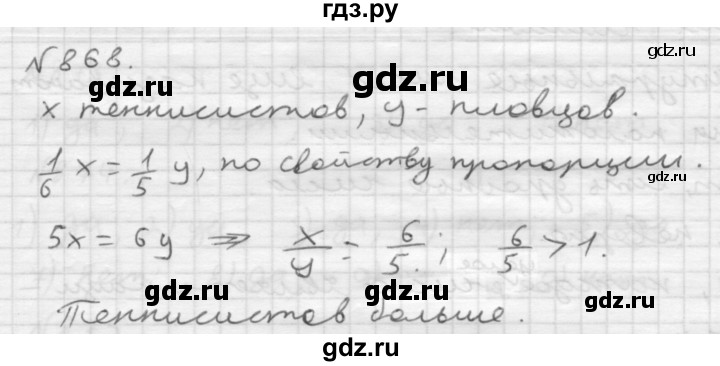 гдз.ру
gdz.ru
№ 868.
gdz.ru
x теннисистов, y - пловцов.
1/6 x = 1/5 y, по свойству пропорции.
gdz.ru
5x = 6y ⇒ x/y = 6/5; 6/5 > 1.
gdz.ru gdz.ru
Теннисистов больше.
gdz.ru